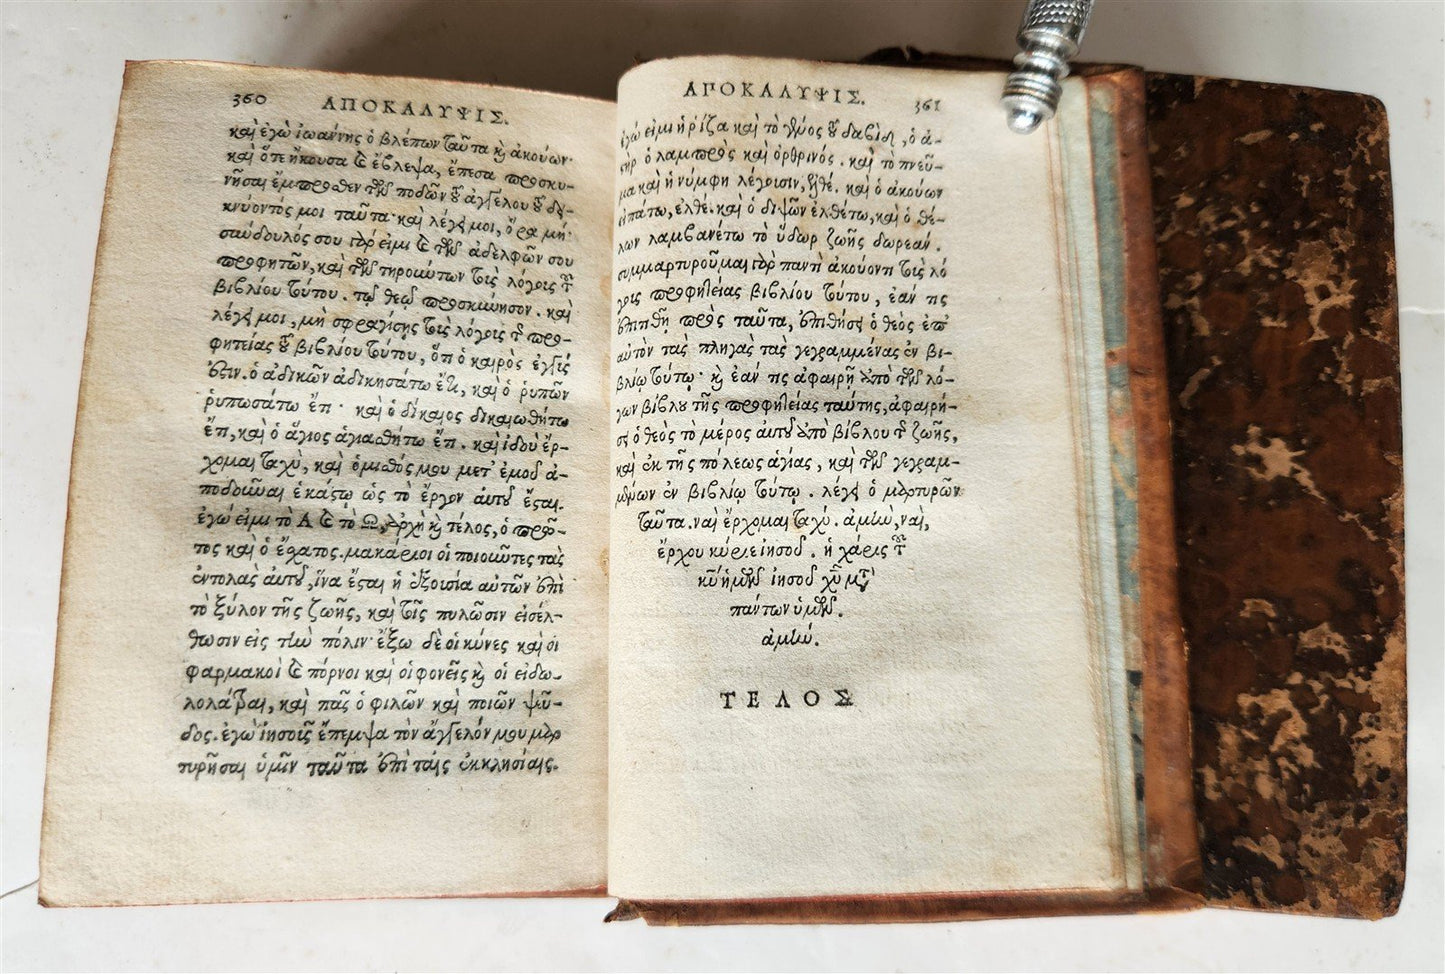 360 ΑΠΟΚΑΛΥΨΙΣ.
καὶ ἐγὼ ἰωάννης ὁ βλέπων ταῦτα κỳ ἀκούων·
καὶ ὅτε ἤκουσα καὶ ἔβλεψα, ἔπεσα προσκυ-
νῆσαι ἔμπροσθεν τῶν ποδῶν τοῦ ἀγγέλου τοῦ δει-
κνύοντός μοι ταῦτα· καὶ λέγει μοι, ὅρα μή·
σαύδουλός σου γάρ εἰμι καὶ τῶν ἀδελφῶν σου
προφητῶν, καὶ τῶν τηρούντων τοὺς λόγοις τοῦ
βιβλίου τούτου. τῷ θεῷ προσκύνησον. καὶ
λέγει μοι, μὴ σφραγίσῃς τοὺς λόγοις τῆς προ-
φητείας τοῦ βιβλίου τούτου, ὅτι ὁ καιρὸς ἐγγύς
ἐστιν. ὁ ἀδικῶν ἀδικησάτω ἔτι, καὶ ὁ ῥυπῶν
ῥυπωσάτω ἔτι· καὶ ὁ δίκαιος δικαιωθήτω
ἔτι, καὶ ὁ ἅγιος ἁγιασθήτω ἔτι. καὶ ἰδοὺ ἔρ-
χομαι ταχὺ, καὶ ὁ μισθός μου μετ' ἐμοῦ ἀ-
ποδοῦναι ἑκάστῳ ὡς τὸ ἔργον αὐτοῦ ἔσται.
ἐγώ εἰμι τὸ Α καὶ τὸ Ω, ἀρχὴ καὶ τέλος, ὁ πρῶ-
τος καὶ ὁ ἔσχατος. μακάριοι οἱ ποιοῦντες τὰς
ἐντολὰς αὐτοῦ, ἵνα ἔσται ἡ ἐξουσία αὐτῶν ἐπὶ
τὸ ξύλον τῆς ζωῆς, καὶ τοῖς πυλῶσιν εἰσέλ-
θωσιν εἰς τὴν πόλιν· ἔξω δὲ οἱ κύνες καὶ οἱ
φαρμακοὶ καὶ πόρνοι καὶ οἱ φονεῖς καὶ οἱ εἰδω-
λολάτραι, καὶ πᾶς ὁ φιλῶν καὶ ποιῶν ψεῦ-
δος. ἐγὼ ἰησοῦς ἔπεμψα τὸν ἄγγελόν μου μαρ
τυρῆσαι ὑμῖν ταῦτα ἐπὶ ταῖς ἐκκλησίαις.
ΑΠΟΚΑΛΥΨΙΣ. 361
ἐγώ εἰμι ἡ ῥίζα καὶ τὸ γένος τοῦ δαβὶδ, ὁ ἀ-
στὴρ ὁ λαμπρὸς καὶ ὀρθρινός. καὶ τὸ πνεῦ-
μα καὶ ἡ νύμφη λέγοισιν, ἐλθέ. καὶ ὁ ἀκούων
εἰπάτω, ἐλθέ. καὶ ὁ διψῶν ἐλθέτω, καὶ ὁ θέ-
λων λαμβανέτω τὸ ὕδωρ ζωῆς δωρεάν.
συμμαρτυροῦμαι γὰρ παντὶ ἀκούοντι τοὺς λό
γοις προφητείας βιβλίου τούτου, ἐάν τις
ἐπιτιθῇ πρὸς ταῦτα, ἐπιθήσει ὁ θεὸς ἐπ'
αὐτὸν τὰς πληγὰς τὰς γεγραμμένας ἐν βι-
βλίῳ τούτῳ· καὶ ἐάν τις ἀφαιρῇ ἀπὸ τῶν λό-
γων βίβλου τῆς προφητείας ταύτης, ἀφαιρή-
σει ὁ θεὸς τὸ μέρος αὐτοῦ ἀπὸ βίβλου τῆς ζωῆς,
καὶ ἐκ τῆς πόλεως ἁγίας, καὶ τῶν γεγραμ-
μένων ἐν βιβλίῳ τούτῳ. λέγει ὁ μαρτυρῶν
ταῦτα. ναὶ ἔρχομαι ταχύ. ἀμὴν, ναὶ,
ἔρχου κύριε ἰησοῦ. ἡ χάρις τοῦ
κυ ἡμῶν ἰησοῦ χυ μετὰ
πάντων ὑμῶν.
ἀμήν.
ΤΕΛΟΣ